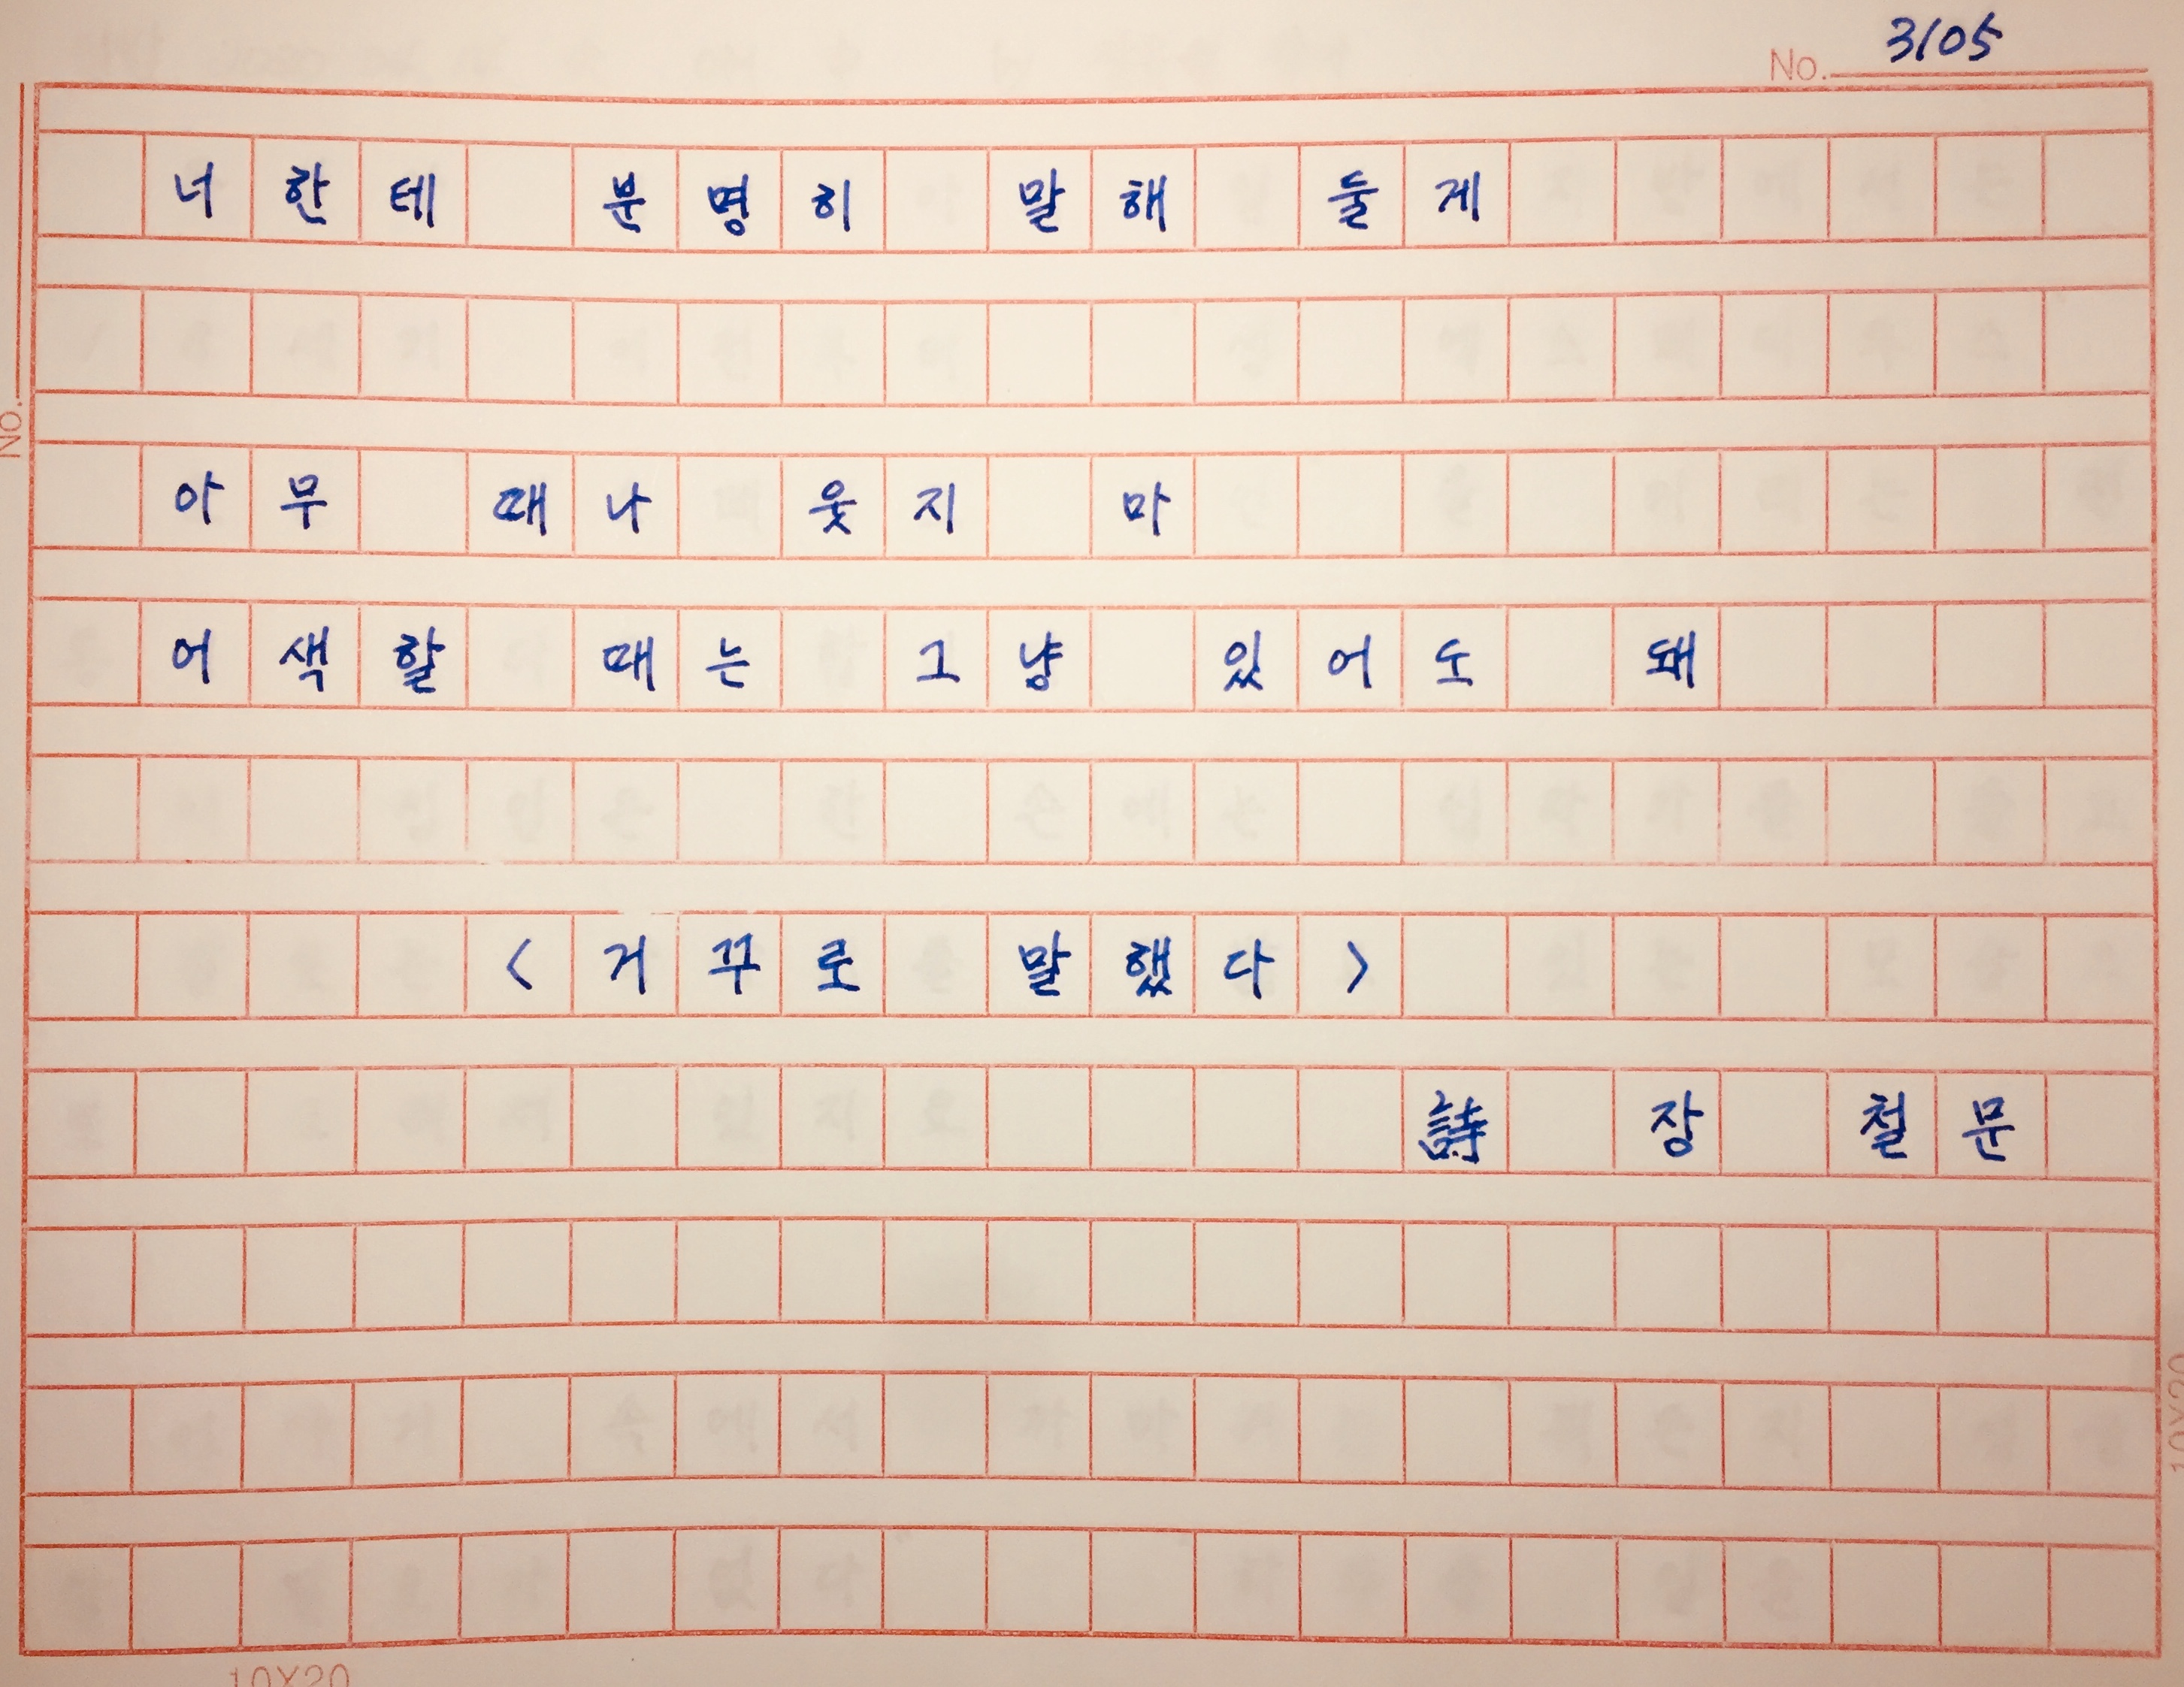 No. 3105
너한테 분명히 말해 둘게
No.
아무 때나 웃지 마
어색할 때는 그냥 있어도 돼
<거꾸로 말했다>
詩 장 철문
10X20
10X20